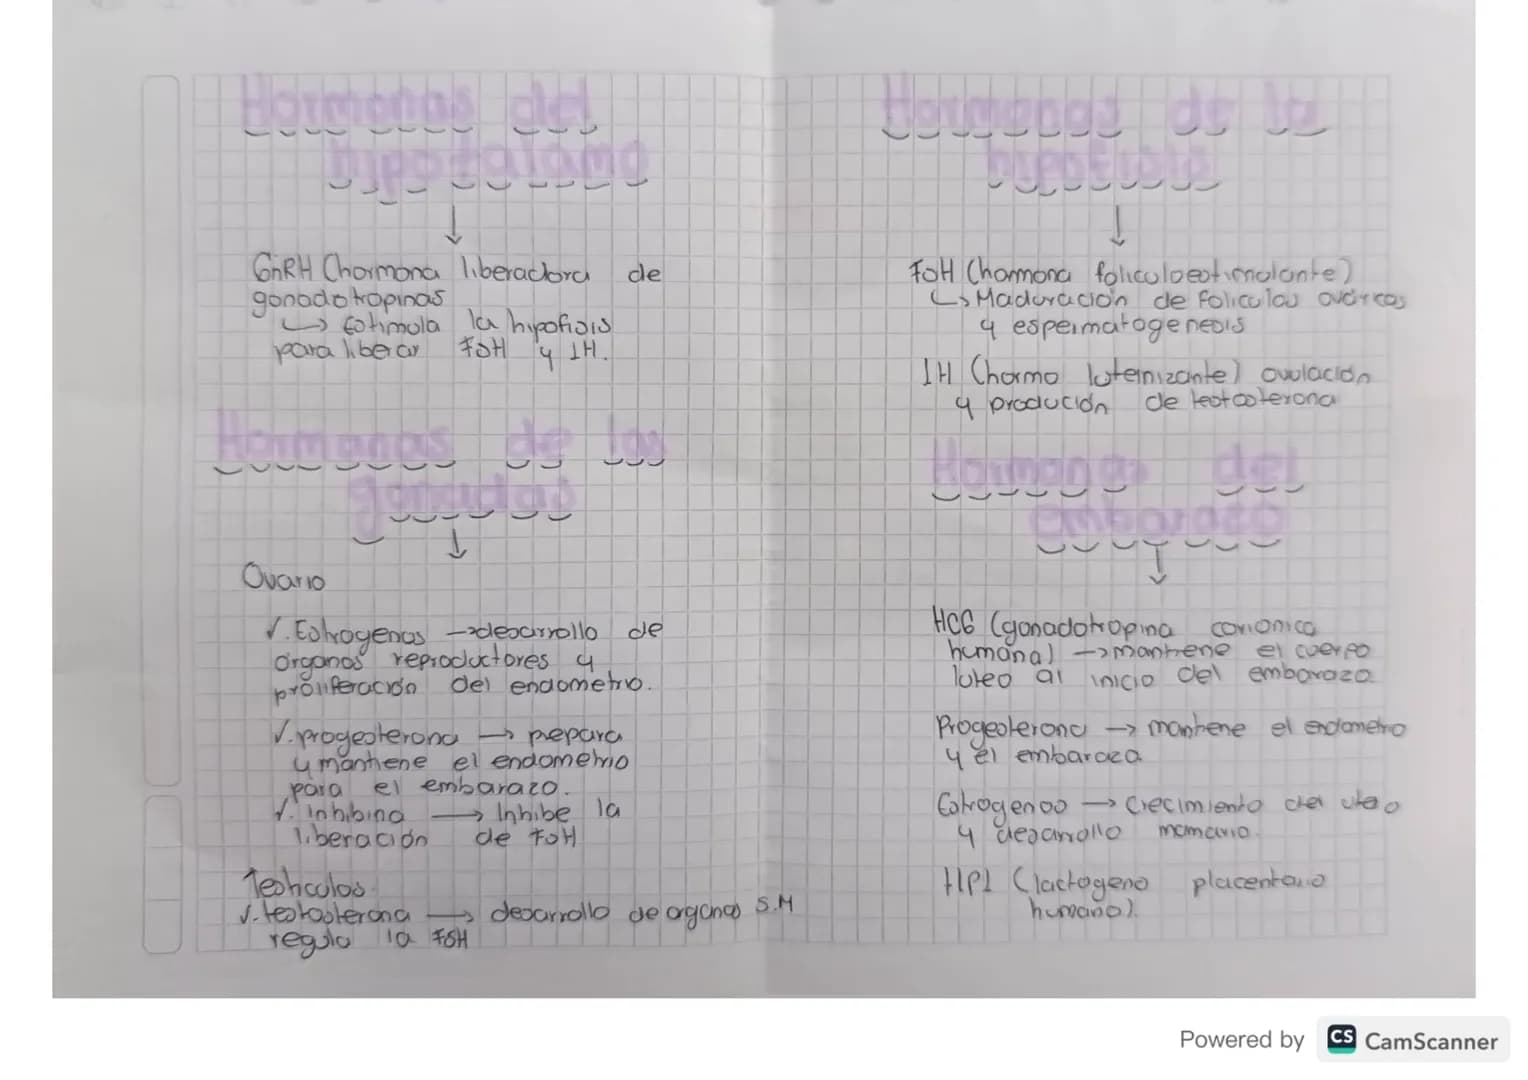 Hormonas del
hipotálamo
GnRH (hormona liberadora de
gonadotropinas
↳ estimula la hipofisis
para liberar FSH y LH.
Hormonas de las
gonadas
Ovario
✓. Estrogenos → desarrollo de
organos reproductores y
proliferación del endometrio.
✓. progesterona → prepara
y mantiene el endometrio
para el embarazo.
✓. inhibina → Inhibe la
liberación de FSH
Testiculos
✓. testosterona → desarrollo de organos S.M
regula la FSH
Hormonas de la
hipofisis
FSH (hormona foliculoestimulante)
↳ Maduración de foliculos ováricos
y espermatogenesis
LH (hormo luteinizante) ovulación
y produción de testosterona
Hormonas del
embarazo
HCG (gonadotropina corionica
humana) → mantiene el cuerpo
luteo al inicio del embarazo
Progesterona → mantiene el endometro
y el embarazo
Estrogenos → Crecimiento del utero
y desarrollo mamario.
HPL (lactogeno placentario
humano).
Powered by CS CamScanner